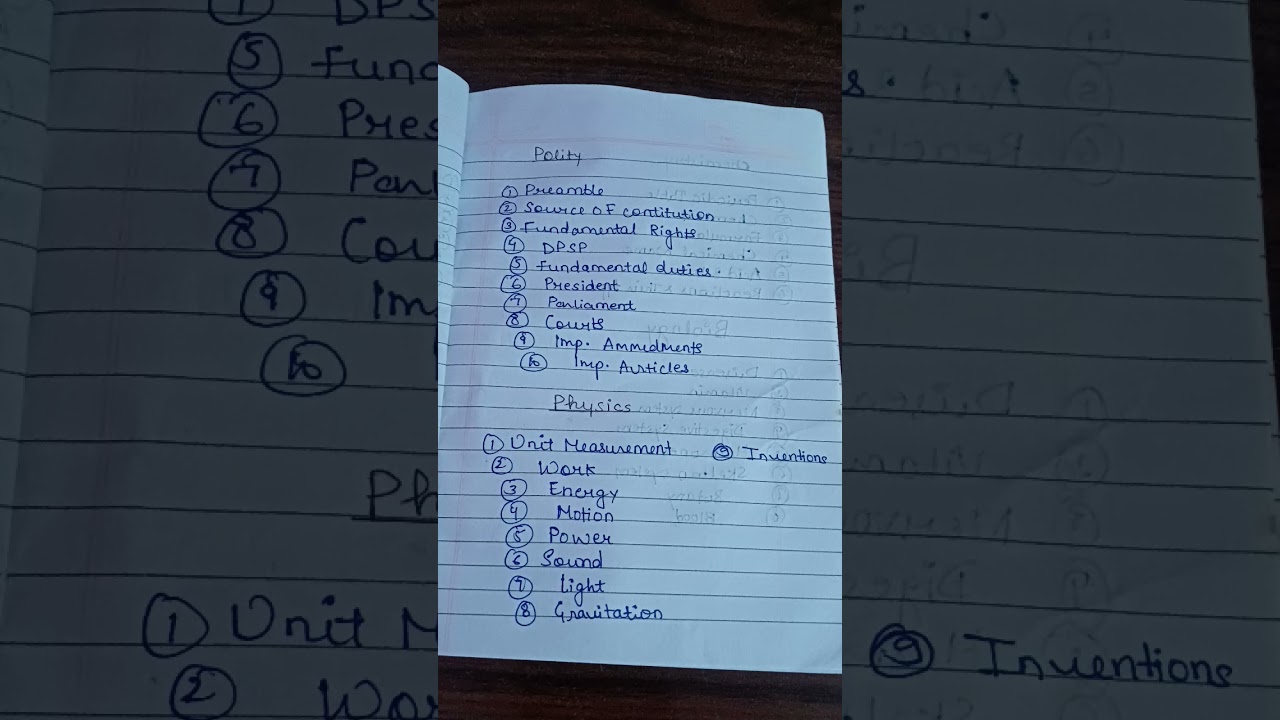 Polity
① Preamble
② Source OF contitution
③ Fundamental Rights
④ DPSP
⑤ Fundamental duties.
⑥ President
⑦ Parliament
⑧ Courts
⑨ Imp. Ammedments
⑩ Imp. Articles
Physics
① Unit Measurement ⑨ Inventions
② Work
③ Energy
④ Motion
⑤ Power
⑥ Sound
⑦ Light
⑧ Gravitation